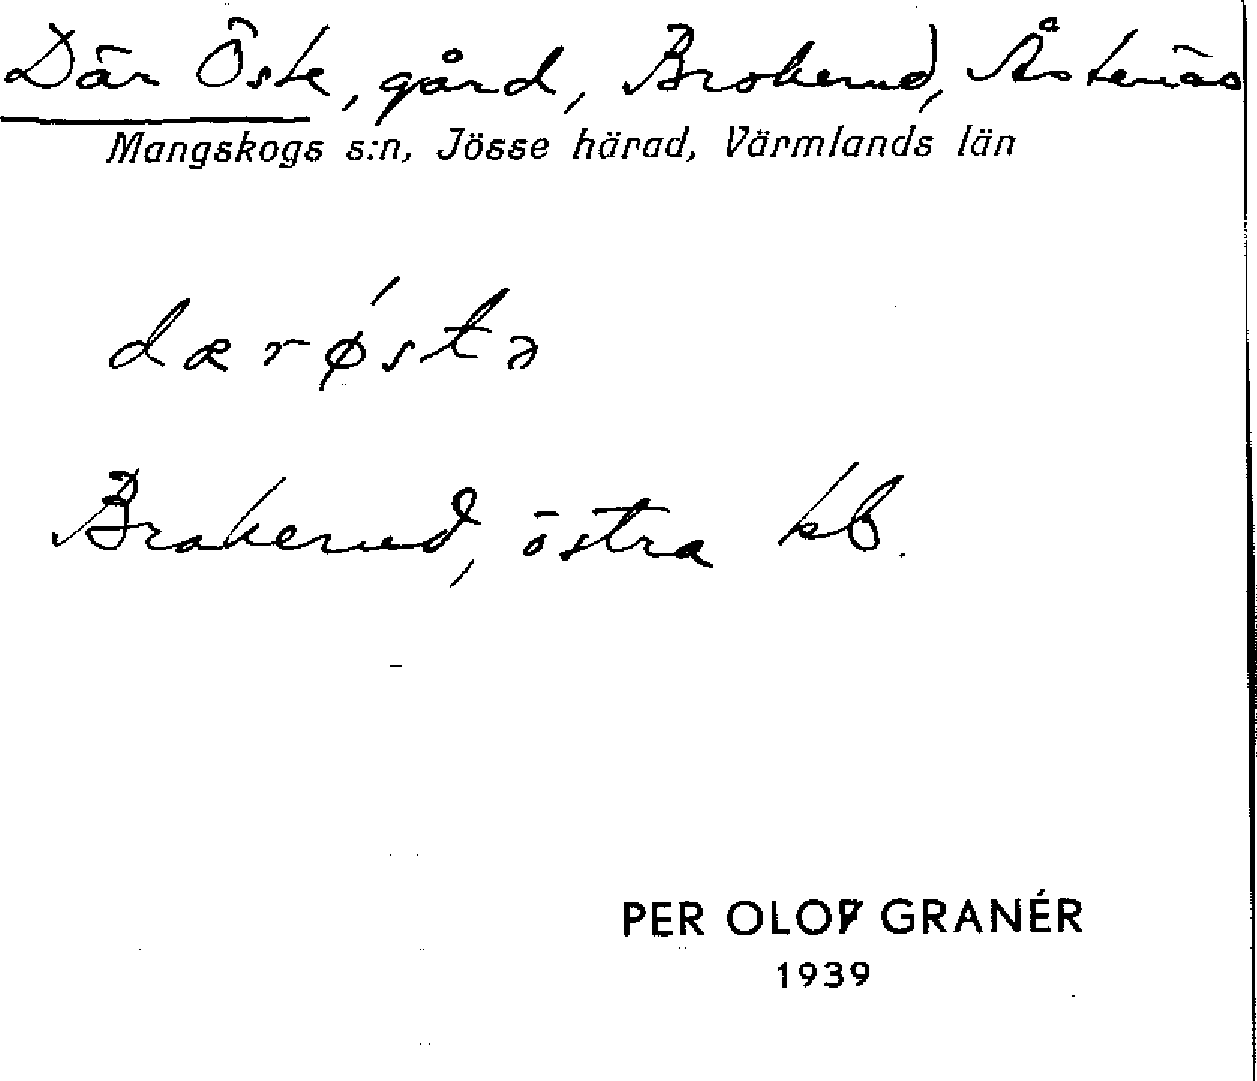 Där Öste, gård, Brokerud, Åstenäs
Mangskogs s:n, Jösse härad, Värmlands län
dærǿstə
Brakerud, östra kb.
PER OLOF GRANÉR
1939